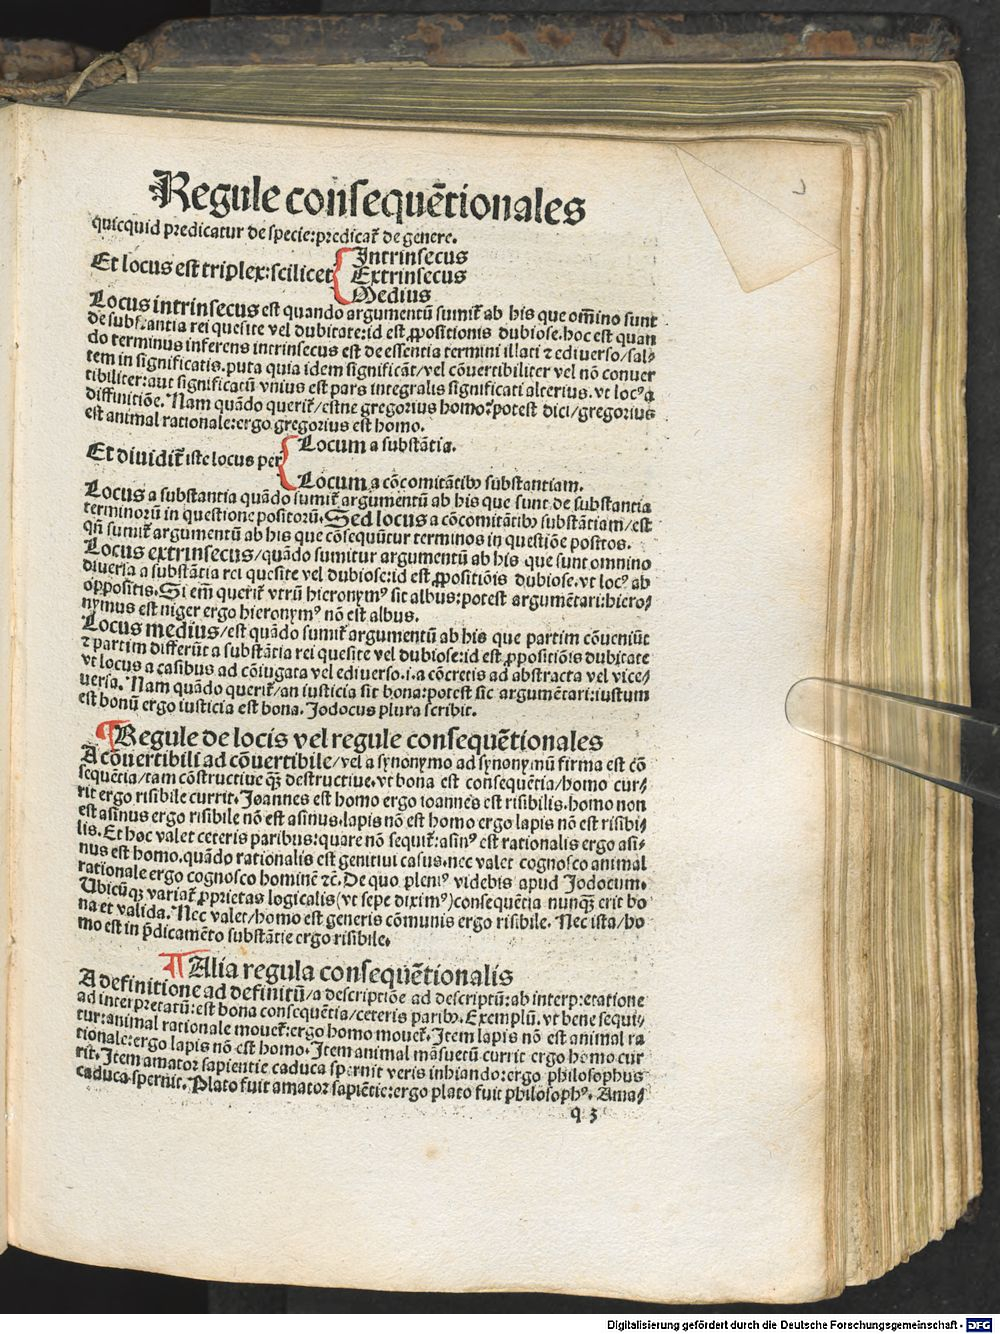 Regule consequẽtionales
quicquid predicatur de specie:predicat᷑ de genere.
Et locus est triplex:scilicet
Intrinsecus
Extrinsecus
Medius
Locus intrinsecus est quando argumentũ sumit᷑ ab his que om̃ino sunt
de substantia rei quesite vel dubitate:id est ꝓpositionis dubiose.hoc est quan
do terminus inferens intrinsecus est de essentia termini illati ⁊ ediuerso/sal⸗
tem in significatis.puta quia idem significãt/vel cõuertibiliter vel nõ conuer
tibiliter:aut significatũ vnius est pars integralis significati alterius.vt locꝰ a
diffinitiõe. Nam quãdo querit᷑/estne gregorius homo?potest dici/gregorius
est animal rationale:ergo gregorius est homo.
Et diuidit᷑ iste locus per
Locum a substãtia.
Locum a cõcomitãtibꝰ substantiam.
Locus a substantia quãdo sumit᷑ argumentũ ab his que sunt de substantia
terminorũ in questione positorũ. Sed locus a cõcomitãtibꝰ substãtiam/est
qñ sumit᷑ argumentũ ab his que cõsequũtur terminos in questiõe positos.
Locus extrinsecus/quãdo sumitur argumentũ ab his que sunt omnino
diuersa a substãtia rei quesite vel dubiose:id est ꝓpositiõis dubiose.vt locꝰ ab
oppositis. Si em̃ querit᷑ vtrũ hieronymꝰ sit albus:potest argumẽtari:hiero⸗
nymus est niger ergo hieronymꝰ nõ est albus.
Locus medius/est quãdo sumit᷑ argumentũ ab his que partim cõueniũt
⁊ partim differũt a substãtia rei quesite vel dubiose:id est ꝓpositiõis dubitate
vt locus a casibus ad cõiugata vel ediuerso.i.a cõcretis ad abstracta vel vice⸗
uersa. Nam quãdo querit᷑/an iusticia sit bona:potest sic argumẽtari:iustum
est bonũ ergo iusticia est bona. Jodocus plura scribit.
¶ Regule de locis vel regule consequẽtionales
A cõuertibili ad cõuertibile/vel a synonymo ad synonymũ firma est cõ
sequẽtia/tam cõstructiue qꝫ destructiue.vt bona est consequẽtia/homo cur⸗
rit ergo risibile currit. Joannes est homo ergo ioannes est risibilis.homo non
est asinus ergo risibile nõ est asinus.lapis nõ est homo ergo lapis nõ est risibi⸗
lis. Et hoc valet ceteris paribus:quare nõ sequit᷑:asinꝰ est rationalis ergo asi⸗
nus est homo.quãdo rationalis est genitiui casus.nec valet cognosco animal
rationale ergo cognosco hominẽ ⁊c̃. De quo pleniꝰ videbis apud Jodocum.
Ubicũqꝫ variat᷑ ꝓprietas logicalis(vt sepe diximꝰ)consequẽtia nunqꝫ erit bo
na et valida. Nec valet/homo est generis cõmunis ergo risibile. Nec ista/ho
mo est in p̃dicamẽto substãtie ergo risibile.
¶ Alia regula consequẽtionalis
A definitione ad definitũ/a descriptiõe ad descriptũ:ab interpretatione
ad interpretatũ:est bona consequẽtia/ceteris paribꝰ. Exemplũ. vt bene sequi⸗
tur:animal rationale mouet᷑:ergo homo mouet᷑. Item lapis nõ est animal ra
tionale:ergo lapis nõ est homo. Item animal mãsuetũ currit ergo homo cur
rit. Item amator sapientie caduca spernit veris inhiando:ergo philosophus
caduca spernit. Plato fuit amator sapiẽtie:ergo plato fuit philosophꝰ. Ama⸗
q 3
Digitalisierung gefördert durch die Deutsche Forschungsgemeinschaft - DFG